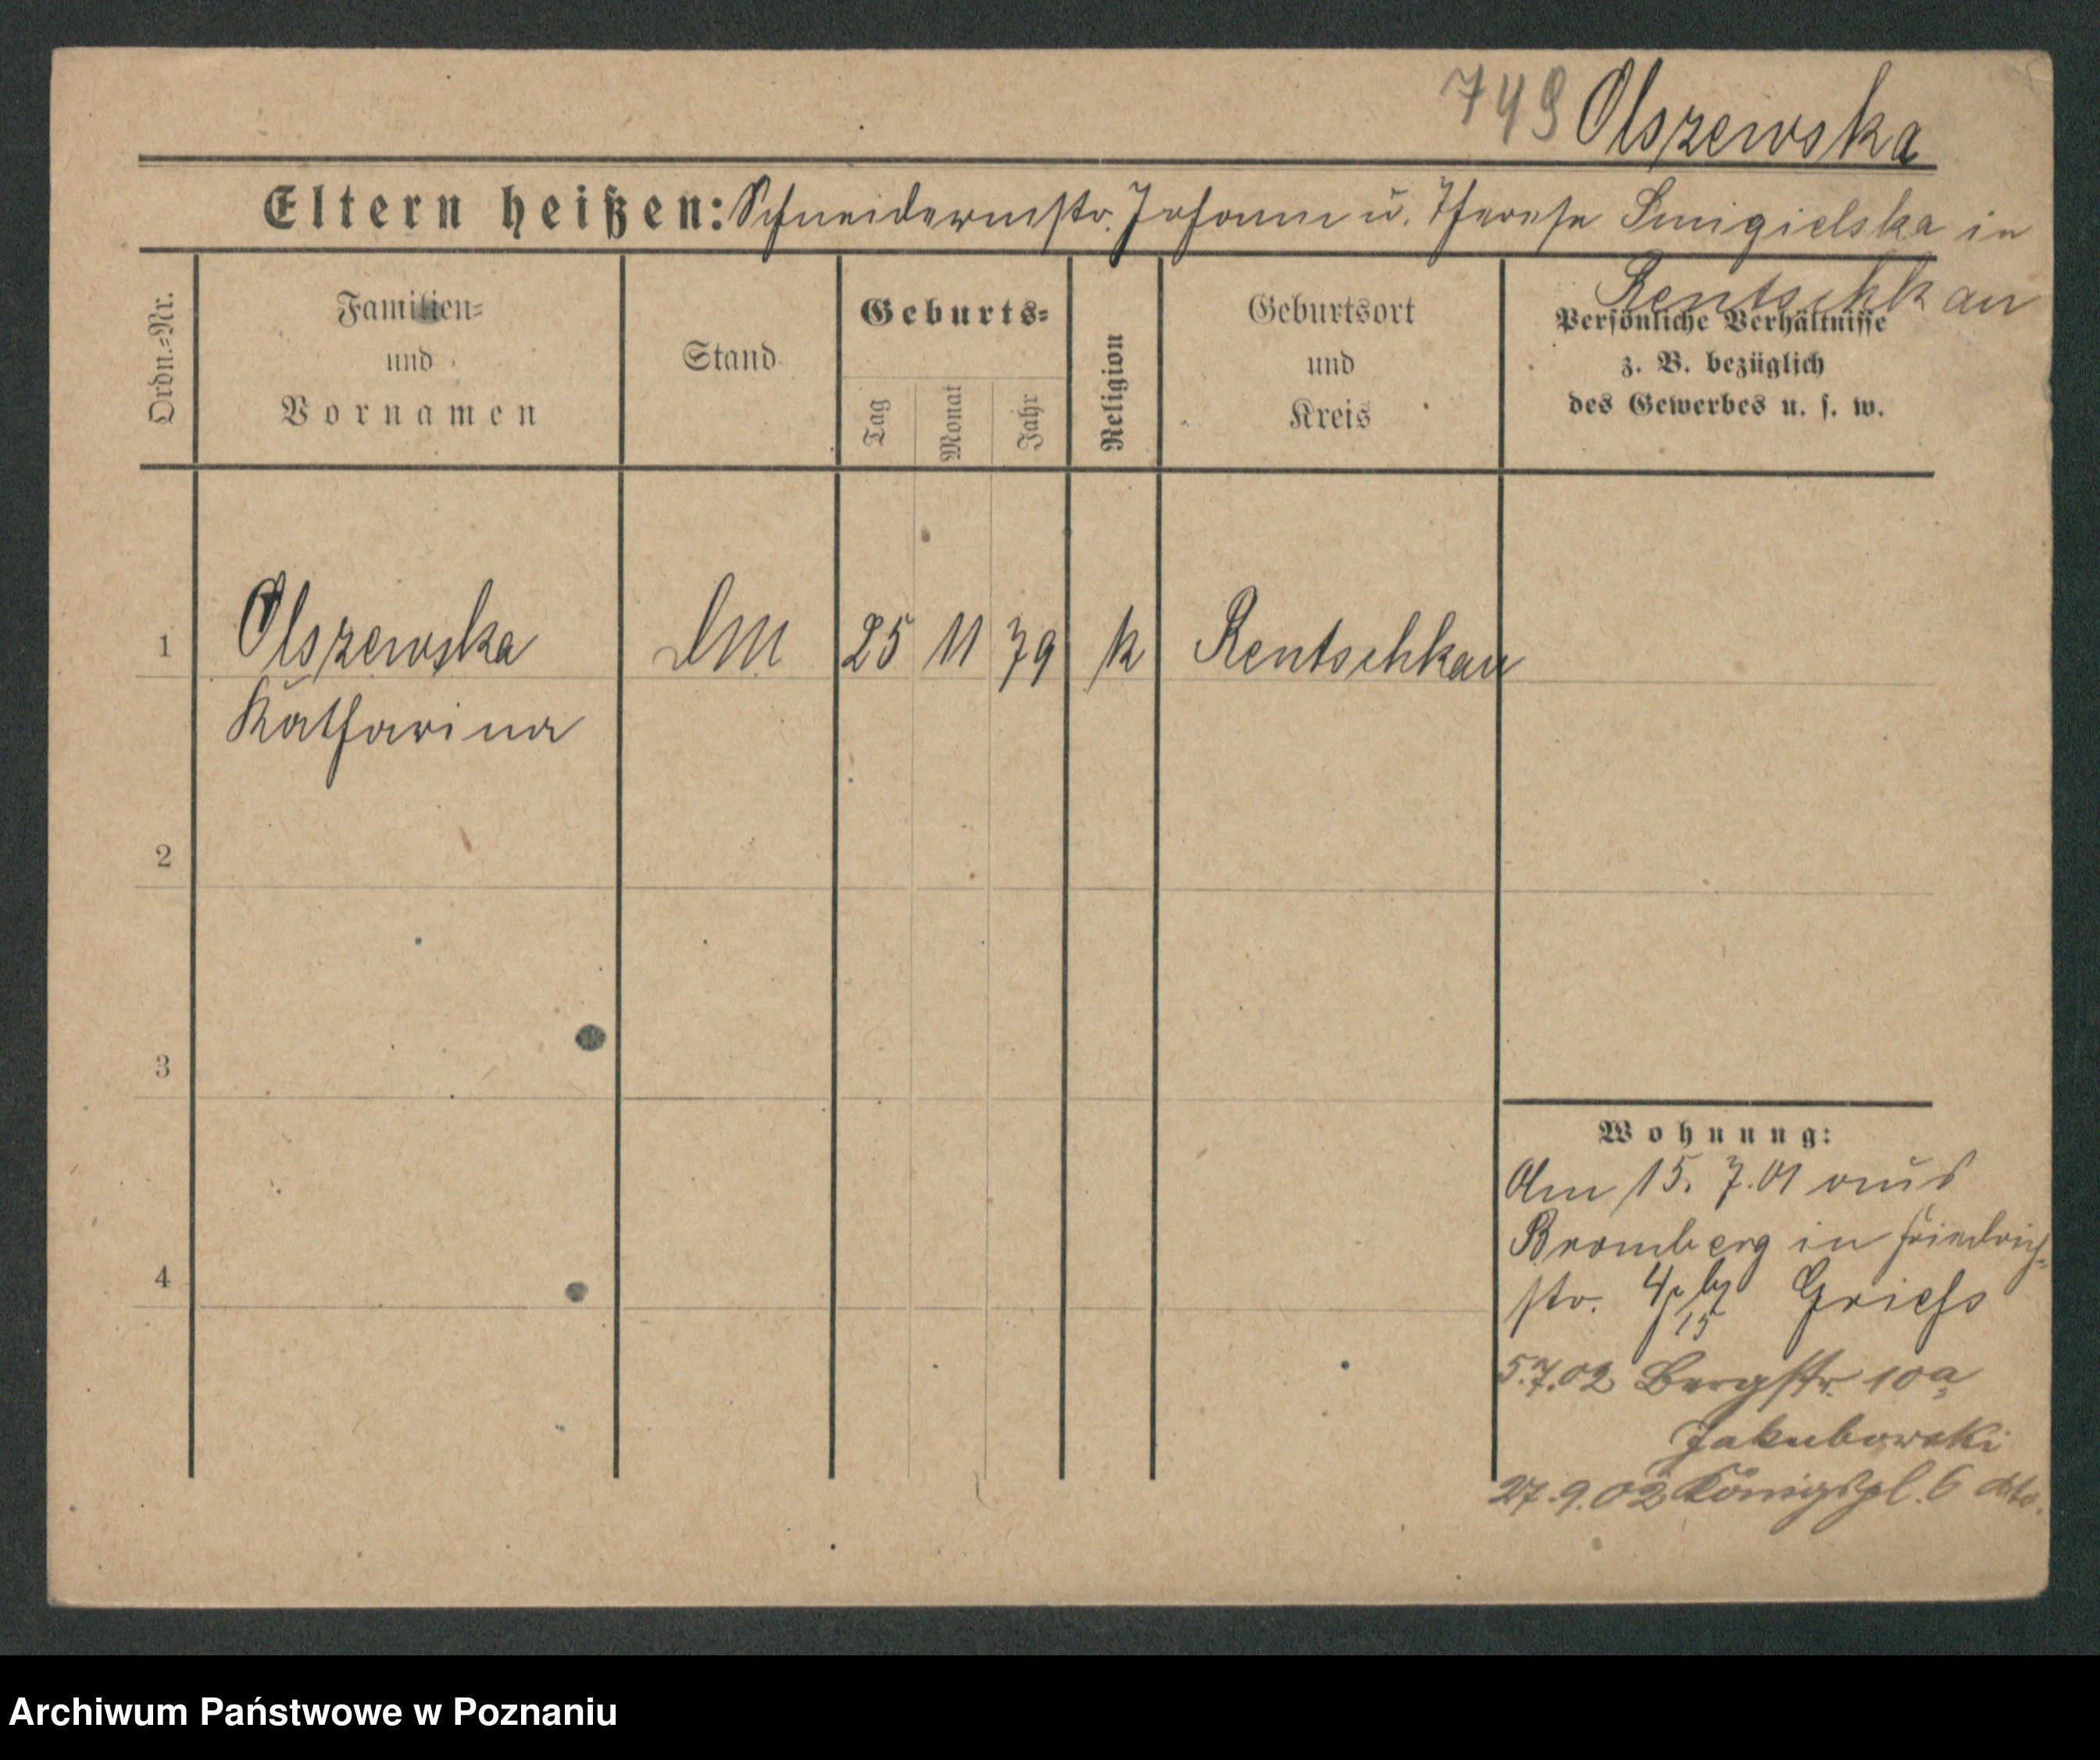 749 Olszewska
Eltern heißen: Schneidermstr. Johann u. Therese Smigielska in
Rentschkau
Ordn.-Nr.
Familien=
und
Vornamen
Stand
Geburts=
Tag
Monat
Jahr
Religion
Geburtsort
und
Kreis
Persönliche Verhältnisse
z. B. bezüglich
des Gewerbes u. s. w.
1 Olszewska 25 11 79 k Rentschkau
Katharina
2
3
4
Wohnung:
Am 15. 7. 01 aus
Bromberg in Friedrich=
str. 4 Griess
15
5.7.02 Bergstr. 10a
Jakubowski
27.9.02 Königspl. 6 dto.
Archiwum Państwowe w Poznaniu